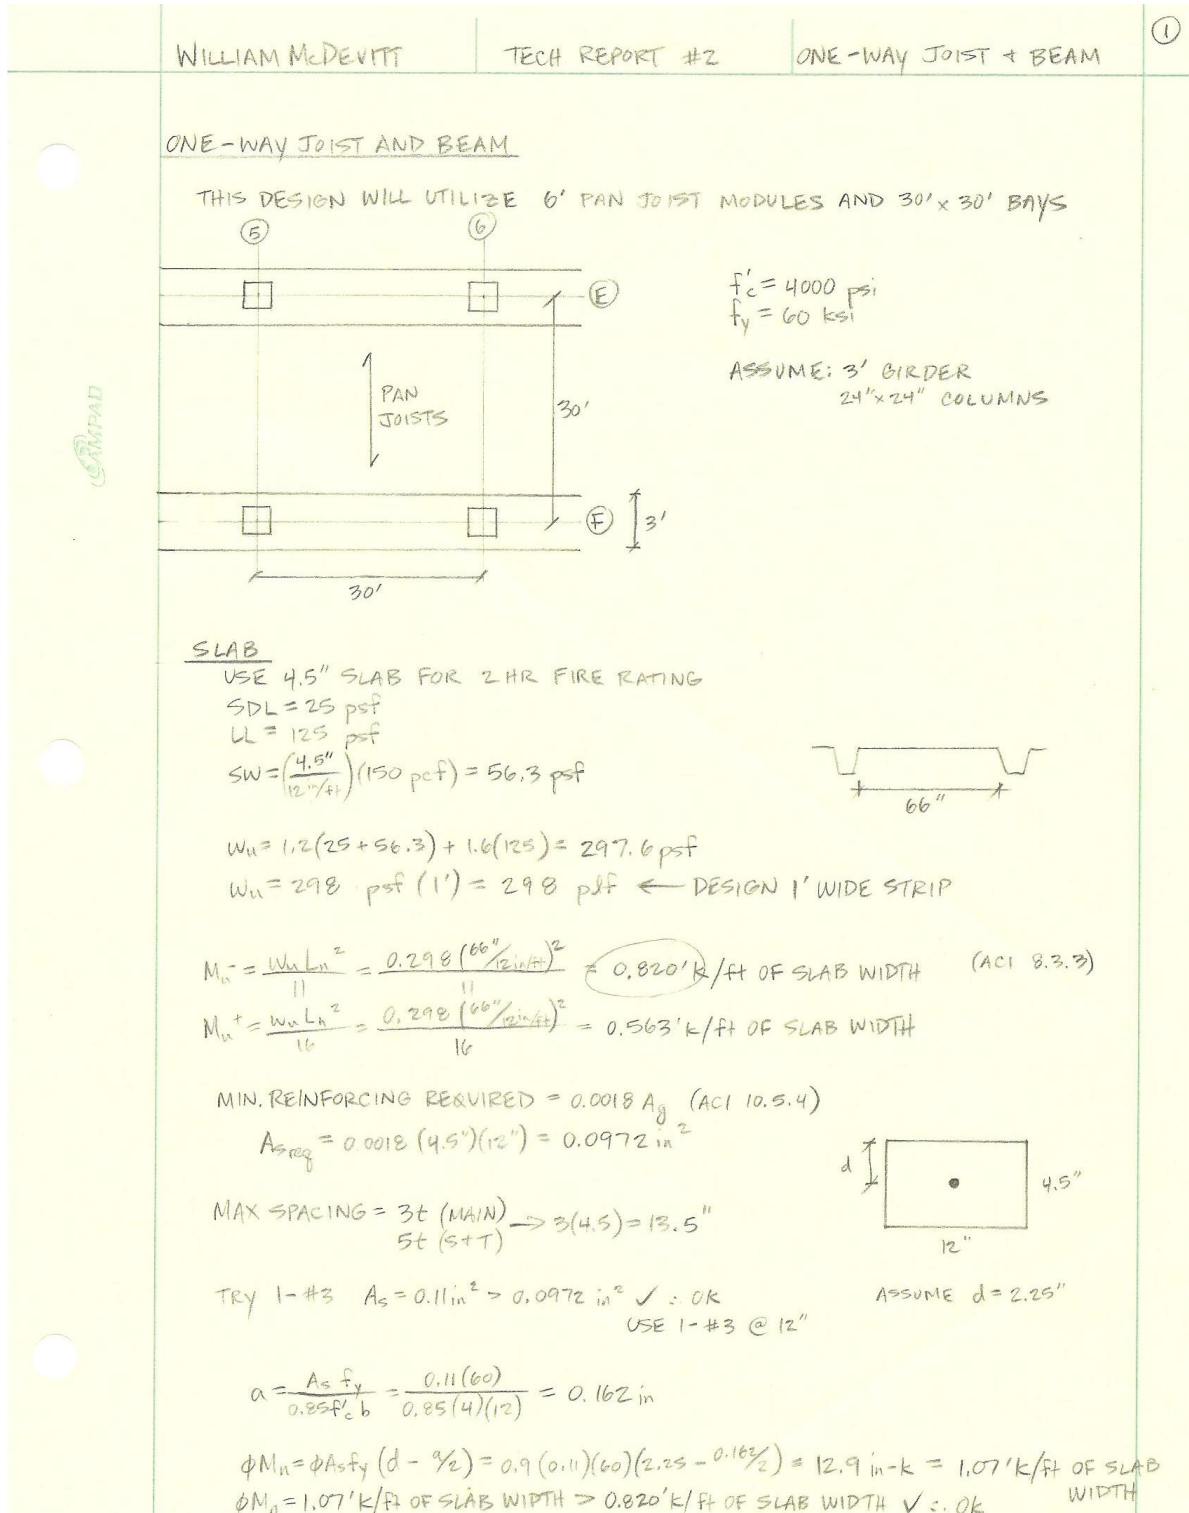 ①
WILLIAM McDEVITT TECH REPORT #2 ONE-WAY JOIST + BEAM
ONE-WAY JOIST AND BEAM
THIS DESIGN WILL UTILIZE 6' PAN JOIST MODULES AND 30' x 30' BAYS
5 6
E
f'c = 4000 psi
fy = 60 ksi
ASSUME: 3' GIRDER
24"x24" COLUMNS
PAN
JOISTS
30'
F 3'
30'
AMPAD
SLAB
USE 4.5" SLAB FOR 2 HR FIRE RATING
SDL = 25 psf
LL = 125 psf
SW = (4.5"/12"/ft)(150 pcf) = 56.3 psf
66"
Wu = 1.2(25+56.3) + 1.6(125) = 297.6 psf
Wu = 298 psf (1') = 298 plf ← DESIGN 1' WIDE STRIP
Mu⁻ = WuLn²/11 = 0.298(66"/12in/ft)²/11 = 0.820'k/ft OF SLAB WIDTH (ACI 8.3.3)
Mu⁺ = WuLn²/16 = 0.298(66"/12in/ft)²/16 = 0.563'k/ft OF SLAB WIDTH
MIN. REINFORCING REQUIRED = 0.0018 Ag (ACI 10.5.4)
As req = 0.0018 (4.5")(12") = 0.0972 in²
d 4.5"
12"
MAX SPACING = 3t (MAIN) → 3(4.5) = 13.5"
5t (S+T)
TRY 1-#3 As = 0.11in² > 0.0972 in² ✓ ∴ OK
ASSUME d = 2.25"
USE 1-#3 @ 12"
a = As fy/0.85f'c b = 0.11(60)/0.85(4)(12) = 0.162 in
ϕMn = ϕAsfy (d - a/2) = 0.9 (0.11)(60)(2.25 - 0.162/2) = 12.9 in-k = 1.07'k/ft OF SLAB
WIDTH
ϕMn = 1.07'k/ft OF SLAB WIDTH > 0.820'k/ft OF SLAB WIDTH ✓ ∴ OK